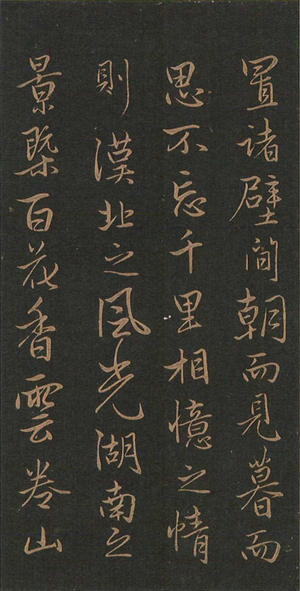 置諸壁間朝而見暮而
思不忘千里相憶之情
則漠北之風光湖南之
景槩百花香雲卷山